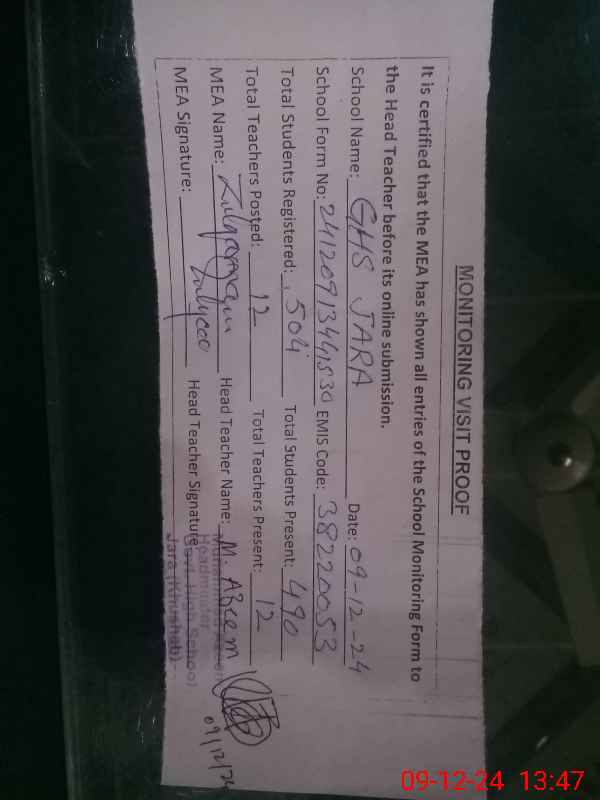 MONITORING VISIT PROOF
It is certified that the MEA has shown all entries of the School Monitoring Form to
the Head Teacher before its online submission.
School Name: GHS JARA Date: 09-12-24
School Form No: 24120913441530 EMIS Code: 38220053
Total Students Registered: 504 Total Students Present: 490
Total Teachers Posted: 12 Total Teachers Present: 12
MEA Name: Head Teacher Name: M. Asleem
MEA Signature: Head Teacher Signature
09/12/24
Headmaster
Govt High School
Jara (Khushab)
09-12-24 13:47